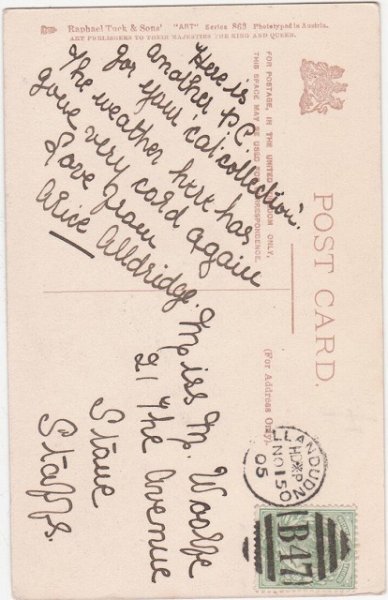 Raphael Tuck & Sons' "ART" Series 863 Phototyped in Austria.
ART PUBLISHERS TO THEIR MAJESTIES THE KING AND QUEEN.
Here is
another p.c.
for your 'cat' collection.
The weather here has
gone very cold again
Love from
Alice Alldridge.
FOR POSTAGE, IN THE UNITED KINGDOM ONLY,
THIS SPACE MAY BE USED FOR CORRESPONDENCE.
POST CARD.
(For Address Only.)
Miss M. Woolfe
21 The Avenue
Stone
Staffs.
LLANDUDNO
NO 15
05
B47